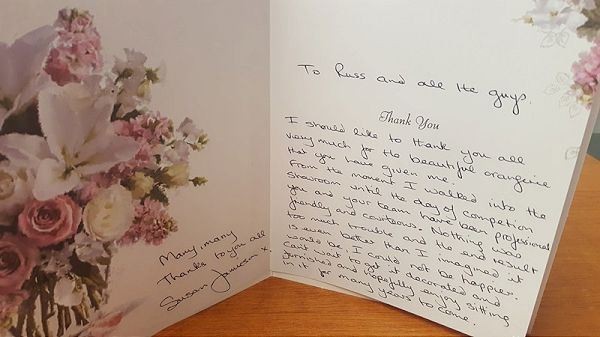 Many, many
Thanks to you all
Susan Jameson x
To Russ and all the guys.
Thank You
I should like to thank you all
very much for the beautiful orangerie
that you have given me.
From the moment I walked into the
showroom until the day of competion
you and your team have been professional
friendly and courteous. Nothing was
too much trouble and the end result
is even better than I imagined it
would be. I could not be happier.
Can't wait to get it decorated and
furnished and hopefully enjoy sitting
in it for many years to come.